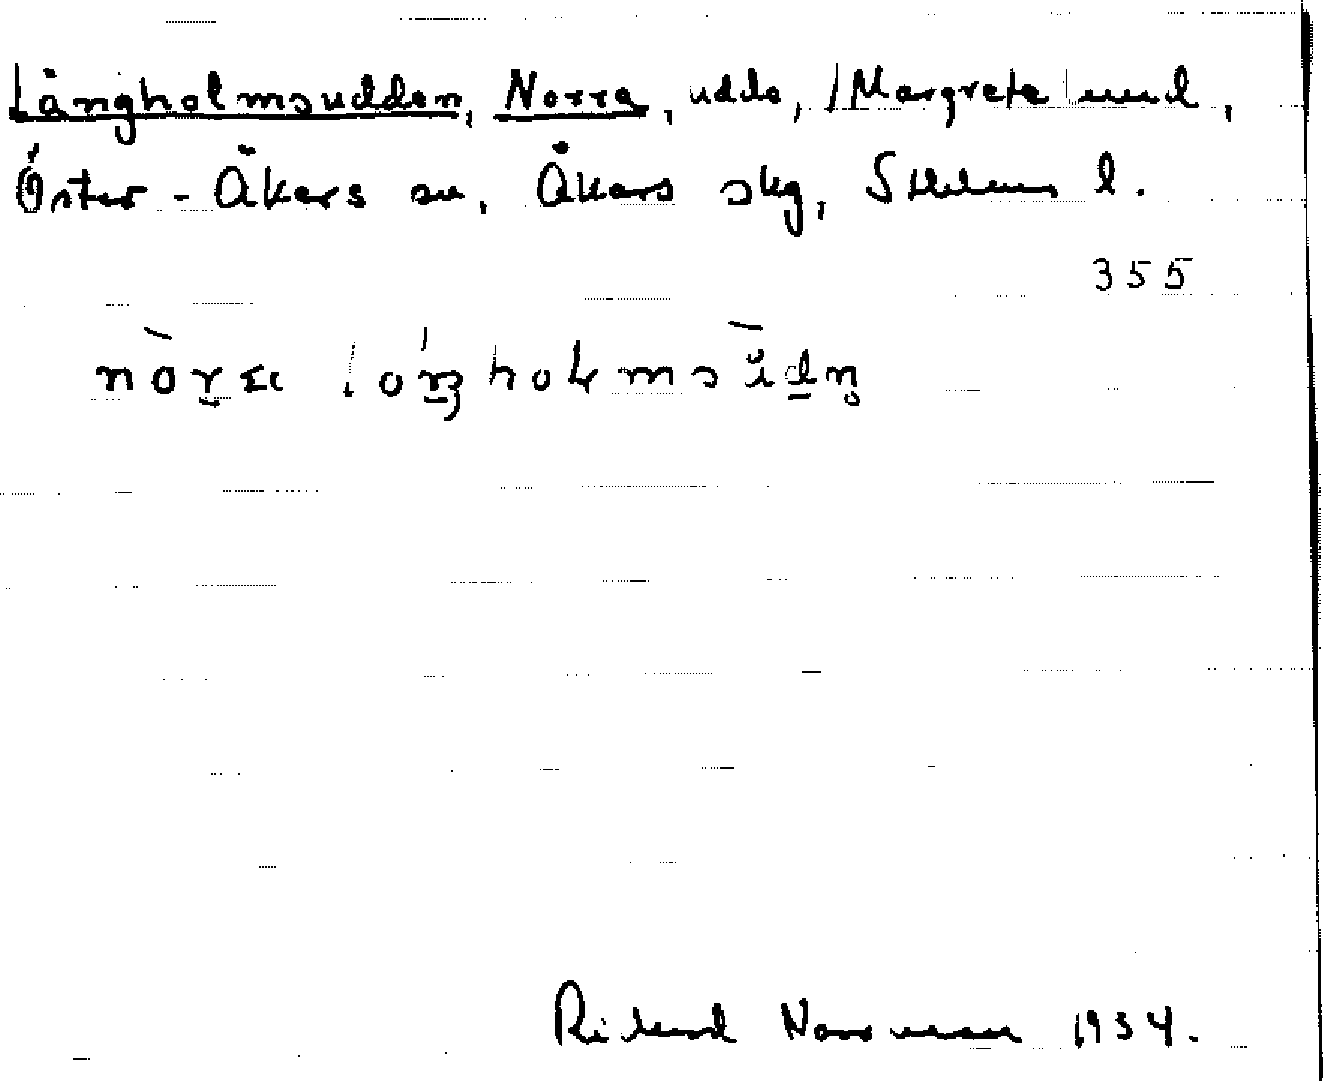 Långholmsudden, Norra, udde, Margretelund,
Öster-Åkers sn, Åkers skg, Sthlms l.
355
nòra lóŋholmsùdn̥
Rikard Norrman 1934.